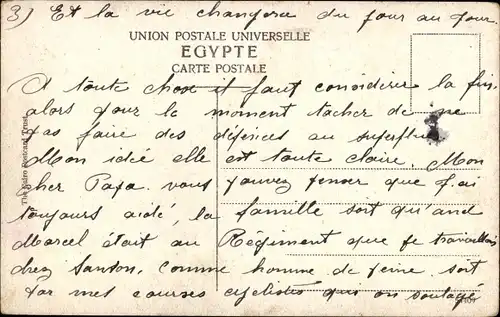 3) Et la vie changera du jour au jour.
UNION POSTALE UNIVERSELLE
EGYPTE
CARTE POSTALE
A toute chose il faut considérer la fin,
alors pour le moment tacher de ne
pas faire des dépences au superflue
Mon idée elle est toute claire. Mon
cher Papa. vous pouvez penser que j'ai
toujours aidé, la famille soit qu'and
Marcel était au Régiment que je travaillais
chez Santon, comme homme de peine. soit
par mes courses cyclistes qui on soulagé
The Cairo Postcard Trust